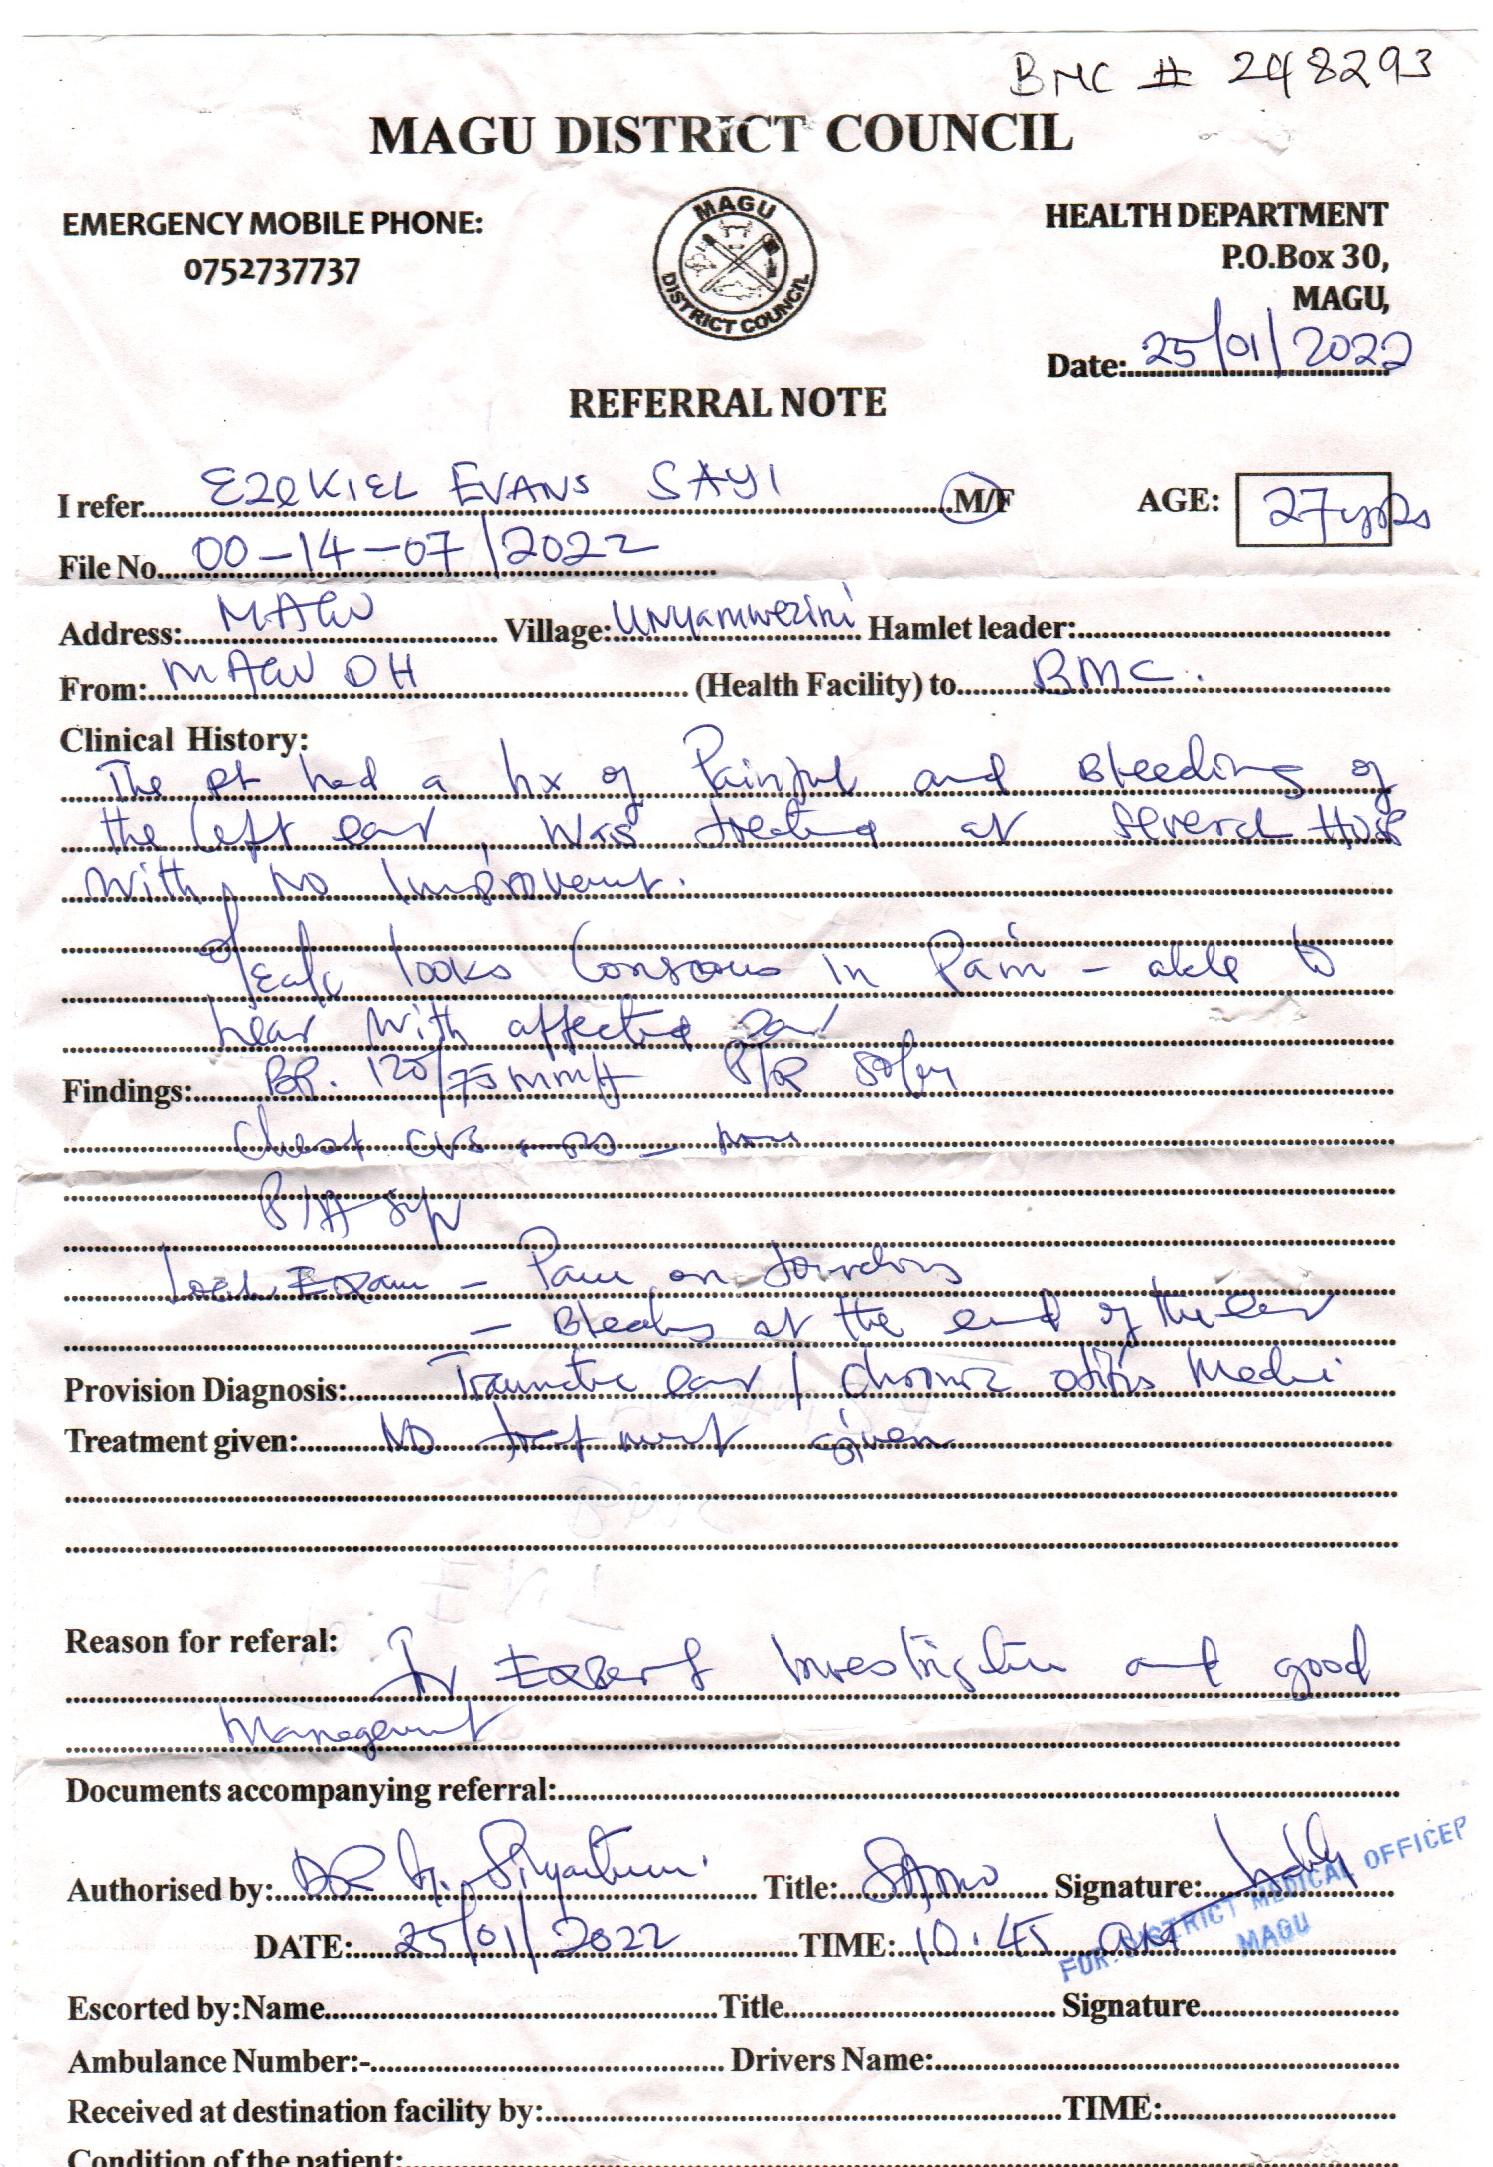 BMC # 248293
MAGU DISTRICT COUNCIL
EMERGENCY MOBILE PHONE:
0752737737
MAGU
DISTRICT COUNCIL
HEALTH DEPARTMENT
P.O.Box 30,
MAGU,
Date: 25/01/2022
REFERRAL NOTE
I refer EZEKIEL EVANS SAYI M/F AGE: 27yrs
File No. 00-14-07/2022
Address: MAGU Village: Unyamwezini Hamlet leader:
From: MAGU DH (Health Facility) to BMC.
Clinical History:
The pt had a hx of Painful and Bleeding of
the left ear, was treated at several Hosp
with no Improvement.
looks Conscious in Pain - able to
hear with affected ear
Findings: BP. 120/75mmH P/R 80/
Chest CVS
P/A
Local Exam - Pain on
- at the end of the ear
Provision Diagnosis: Traumatic ear / chronic otitis Media
Treatment given: No treatment given
Reason for referal: For Expert Investigation and good
Management
Documents accompanying referral:
Authorised by: DR Title: Signature:
FOR: DISTRICT MEDICAL OFFICER
MAGU
DATE: 25/01/2022 TIME: 10:45 am
Escorted by:Name Title Signature
Ambulance Number:- Drivers Name:
Received at destination facility by: TIME:
Condition of the patient: